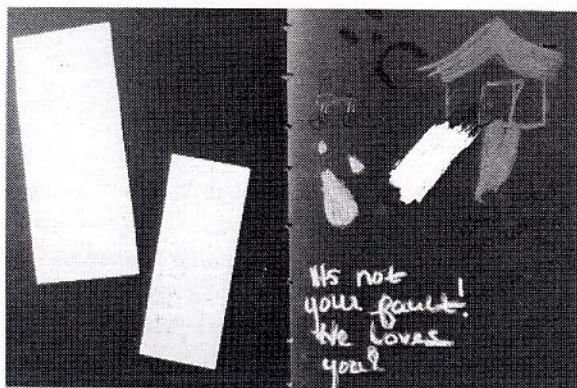 Its not
your fault!
He Loves
you?